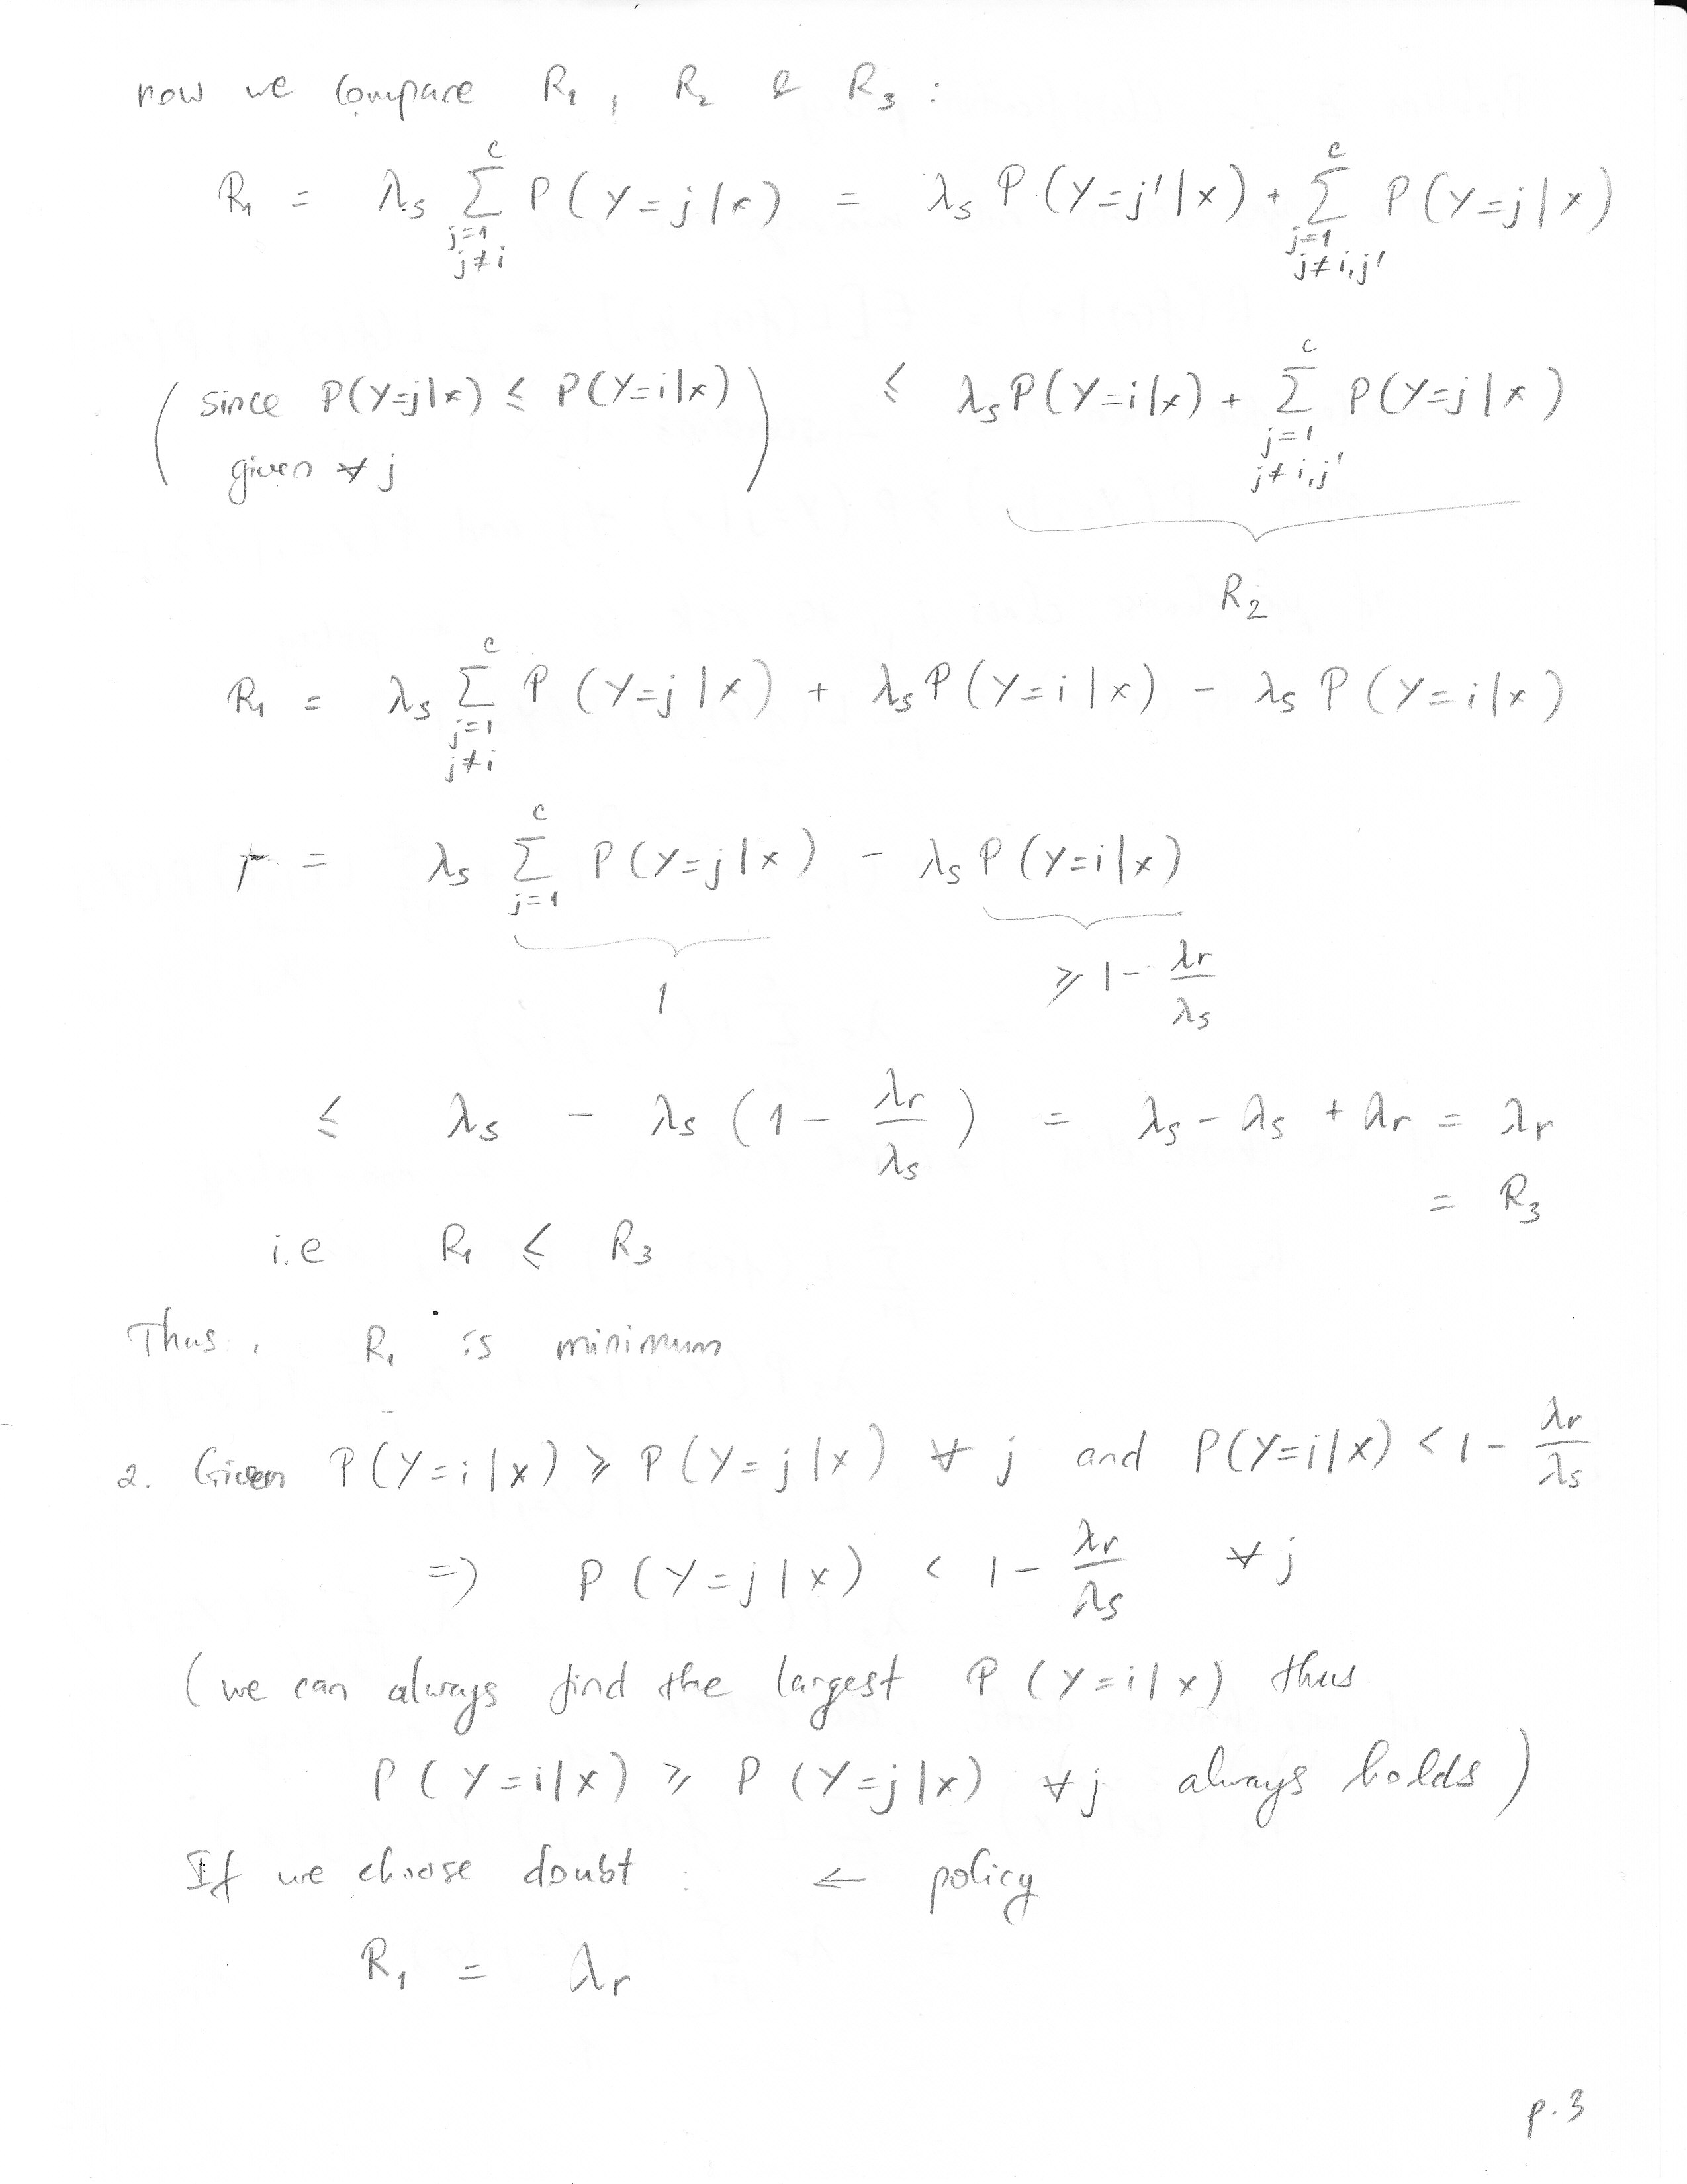 now we compare R₁, R₂ & R₃ :
R₁ = λs ∑_{j=1, j≠i}^{c} P(Y=j|x) = λs P(Y=j'|x) + ∑_{j=1, j≠i,j'}^{c} P(Y=j|x)
(since P(Y=j|x) ≤ P(Y=i|x) given ∀ j) ≤ λs P(Y=i|x) + ∑_{j=1, j≠i,j'}^{c} P(Y=j|x)
R₂
R₁ = λs ∑_{j=1, j≠i}^{c} P(Y=j|x) + λs P(Y=i|x) - λs P(Y=i|x)
= λs ∑_{j=1}^{c} P(Y=j|x) - λs P(Y=i|x)
1 ≥ 1 - λr/λs
≤ λs - λs (1 - λr/λs) = λs - λs + λr = λr
= R₃
i.e R₁ ≤ R₃
Thus, R₁ is minimum
2. Given P(Y=i|x) ≥ P(Y=j|x) ∀ j and P(Y=i|x) < 1 - λr/λs
=> P(Y=j|x) < 1 - λr/λs ∀ j
(we can always find the largest P(Y=i|x) thus
P(Y=i|x) ≥ P(Y=j|x) ∀j always holds)
If we choose doubt : ← policy
R₁ = λr
p.3